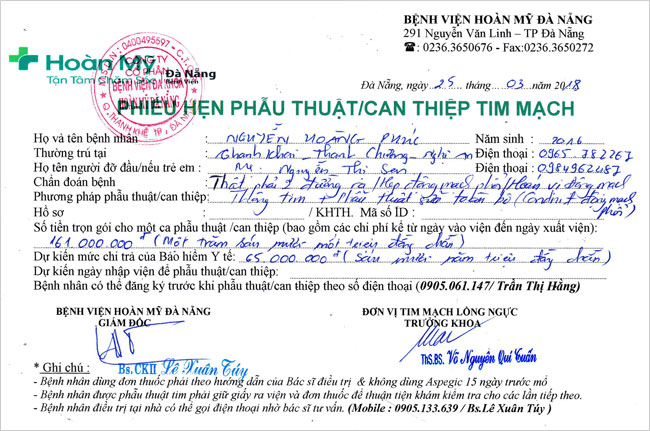 BỆNH VIỆN HOÀN MỸ ĐÀ NẴNG
291 Nguyễn Văn Linh – TP Đà Nẵng
☎: 0236.3650676 - Fax:0236.3650272
Hoàn Mỹ
Đà Nẵng
Tận Tâm Chăm Sóc
BỆNH VIỆN ĐA KHOA
Đà Nẵng, ngày 25 tháng 03 2018
PHIẾU HẸN PHẪU THUẬT/CAN THIỆP TIM MẠCH
Họ và tên bệnh nhân NGUYỄN HOÀNG PHÚC Năm sinh: 2016
Thường trú tại Khai - Thanh Chương - Nghệ An Điện thoại: 0965 782267
Họ tên người đỡ đầu/nếu trẻ em: Mẹ. Nguyễn Thị Sen Điện thoại: 0984962487
Chẩn đoán bệnh: Thất phải 2 đường ra / Hẹp động mạch phổi/Hoán vị động mạch
Phương pháp phẫu thuật/can thiệp: Thông tim + Phẫu thuật sửa toàn bộ (
Hồ sơ / KHTH. Mã số ID :
Số tiền trọn gói cho một ca phẫu thuật /can thiệp (bao gồm các chi phí kể từ ngày vào viện đến ngày xuất viện):
161.000.000 đ (Một trăm sáu mươi một triệu đồng chẵn)
Dự kiến mức chi trả của Bảo hiểm Y tế: 65.000.000 đ (Sáu mươi năm triệu đồng chẵn)
Dự kiến ngày nhập viện để phẫu thuật/can thiệp:
Bệnh nhân có thể đăng ký trước khi phẫu thuật/can thiệp theo số điện thoại (0905.061.147/ Trần Thị Hằng)
BỆNH VIỆN HOÀN MỸ ĐÀ NẴNG
GIÁM ĐỐC
ĐƠN VỊ TIM MẠCH LỒNG NGỰC
TRƯỞNG KHOA
Bs.CKII Lê Xuân Túy
ThS.BS. Võ Nguyên Quí Tuấn
* Ghi chú :
- Bệnh nhân dùng đơn thuốc phải theo hướng dẫn của Bác sĩ điều trị & không dùng Aspegic 15 ngày trước mổ
- Bệnh nhân được phẫu thuật tim phải giữ giấy ra viện và đơn thuốc để thuận tiện khám kiểm tra cho các lần tiếp theo.
- Bệnh nhân điều trị tại nhà có thể gọi điện thoại nhờ bác sĩ tư vấn. (Mobile : 0905.133.639 / Bs.Lê Xuân Túy )